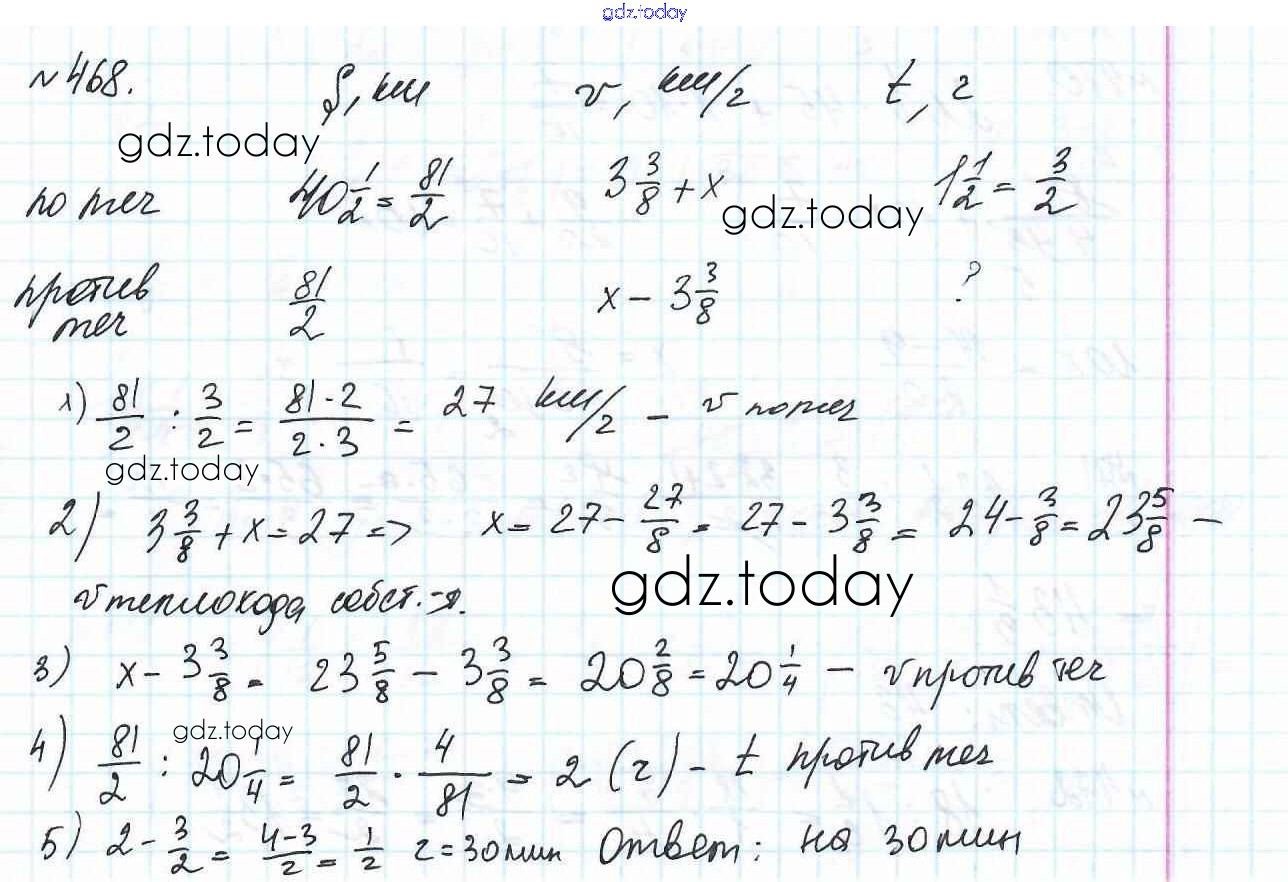 gdz.today
№468. S, км v, км/г t, г
gdz.today
по теч 40 1/2 = 81/2 3 3/8 + x 1 1/2 = 3/2
gdz.today
против теч 81/2 x - 3 3/8 ?
1) 81/2 : 3/2 = 81·2/2·3 = 27 км/г - v по теч
gdz.today
2) 3 3/8 + x = 27 => x = 27 - 27/8 = 27 - 3 3/8 = 24 - 3/8 = 23 5/8 -
gdz.today
v теплохода собст.-я.
3) x - 3 3/8 = 23 5/8 - 3 3/8 = 20 2/8 = 20 1/4 - v против теч
gdz.today
4) 81/2 : 20 1/4 = 81/2 · 4/81 = 2 (г) - t против теч
5) 2 - 3/2 = 4-3/2 = 1/2 г = 30 мин Ответ: на 30 мин